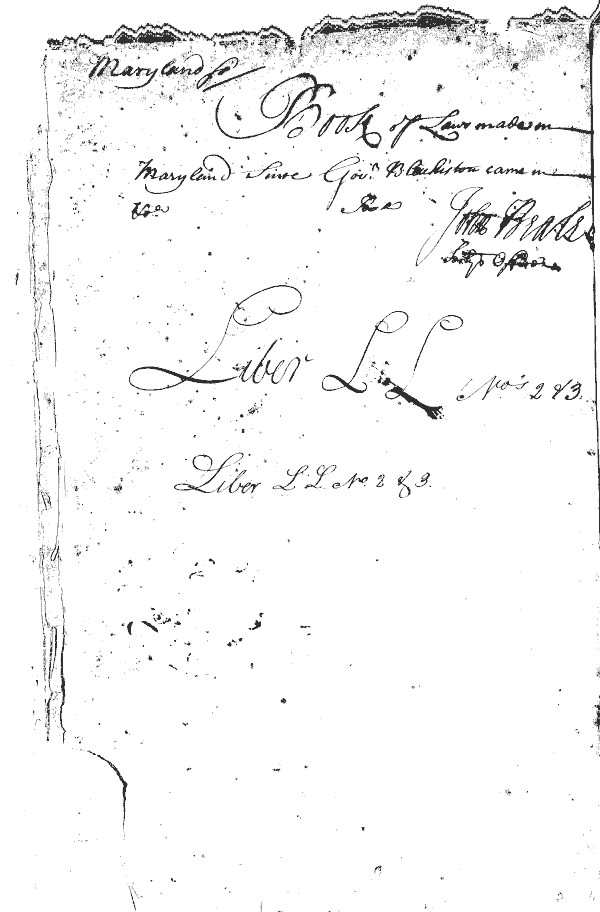 Maryland ss
Book of Laws made in
Maryland Since Gov.r Blackiston came in
John Beale
Liber L L Nos 2 & 3.
Liber L L. No. 2 & 3.